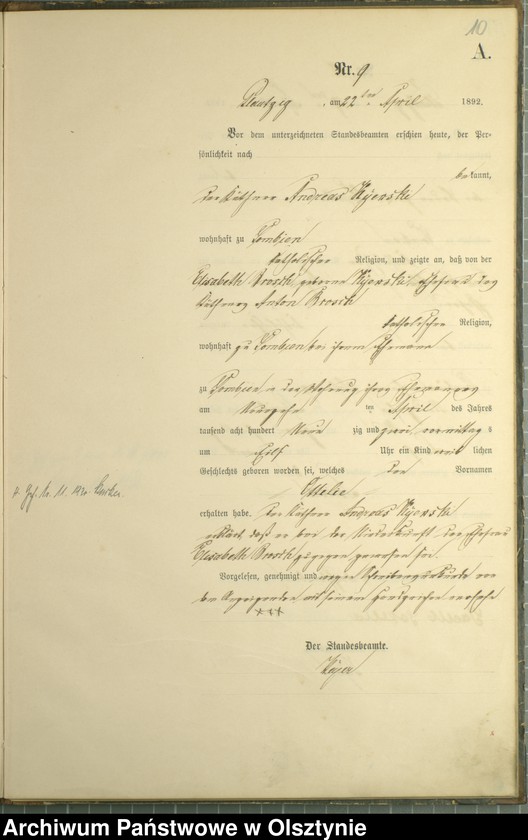 10
A.
Nr. 9
am 22ten April 1892.
Vor dem unterzeichneten Standesbeamten erschien heute, der Per-
sönlichkeit nach
bekannt,
der Käthner Andreas Kijewski
wohnhaft zu Combien
katholischer Religion, und zeigte an, daß von der
Elisabeth Brosch, geborene Kijewski, Ehefrau des
Käthners Anton Brosch
katholischer Religion,
wohnhaft zu Combien bei ihrem Ehemann
zu Combien in der Wohnung ihres Ehemannes
am ten April des Jahres
tausend acht hundert Neun zig und zwei, vormittags
um Uhr ein Kind weib lichen
Geschlechts geboren worden sei, welches den Vornamen
Ottilie
erhalten habe. Der Käthner Andreas Kijewski
erklärt, daß er bei der Niederkunft der Ehefrau
Elisabeth Brosch zugegen gewesen sei.
Vorgelesen, genehmigt und wegen Schreibensunkunde von
dem Anzeigenden mit seinem Handzeichen versehen
+++
Der Standesbeamte.
Archiwum Państwowe w Olsztynie